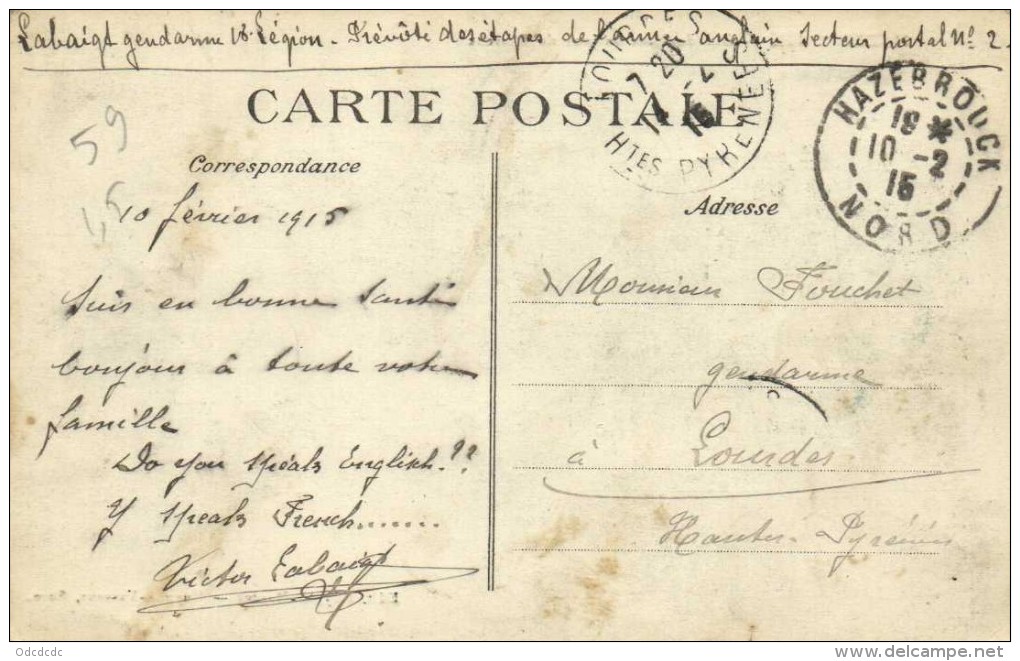 Labaigt gendarme 18e Légion - Prévôté des étapes de l'armée anglaise Secteur postal No 2.
CARTE POSTALE
LOURDES
7 20
14 - 2
15
HTES PYRENEES
HAZEBROUCK
18 *
10 - 2
15
NORD
59
Correspondance
10 février 1915
Suis en bonne santé
bonjour à toute votre
famille
Do you speak English.??
Y speak French........
Victor Labaigt
Adresse
Monsieur Fouchet
gendarme
à Lourdes
Hautes-Pyrénées
Odcdcdc
delcampe.net